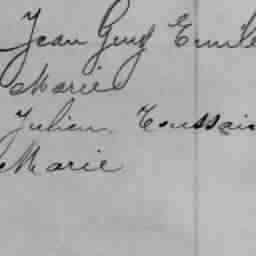 Jean Guy Emile
Marie
Julien Toussain
Marie